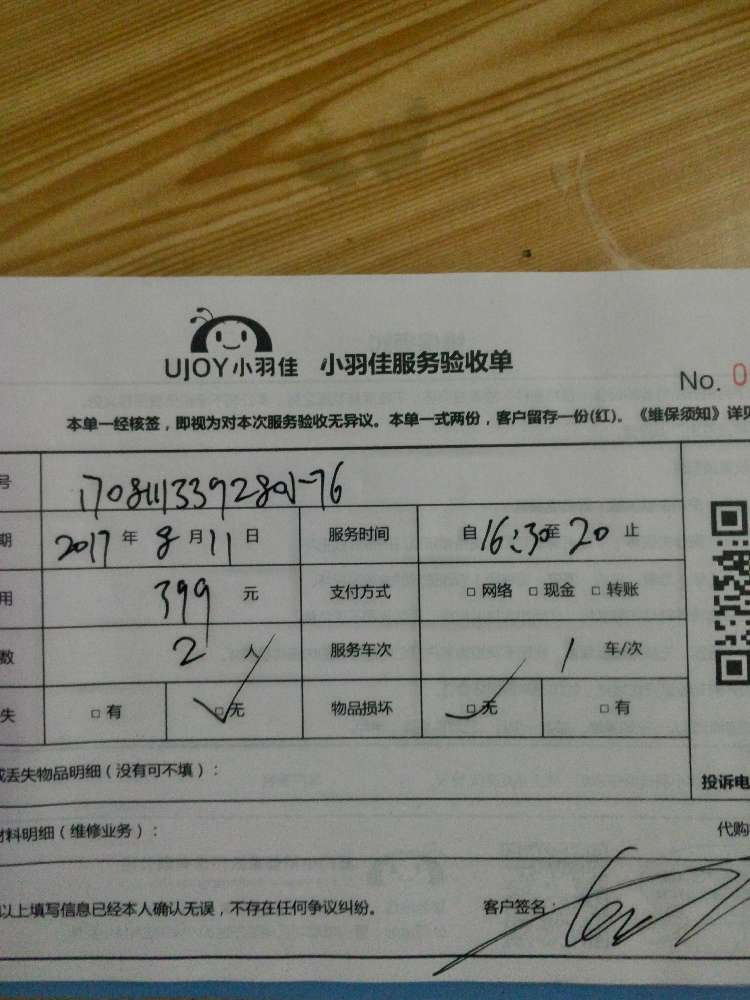 UJOY小羽佳 小羽佳服务验收单
No. 0
本单一经核签，即视为对本次服务验收无异议。本单一式两份，客户留存一份(红)。《维保须知》详见
号
期 2017 年 8 月 11 日 服务时间 自 16:30 至 20 止
用 399 元 支付方式 □ 网络 □ 现金 □ 转账
数 2 人 服务车次 1 车/次
失 □ 有 □ 无 物品损坏 □ 无 □ 有
或丢失物品明细（没有可不填）：
投诉电
材料明细（维修业务）：
代购
以上填写信息已经本人确认无误，不存在任何争议纠纷。 客户签名：